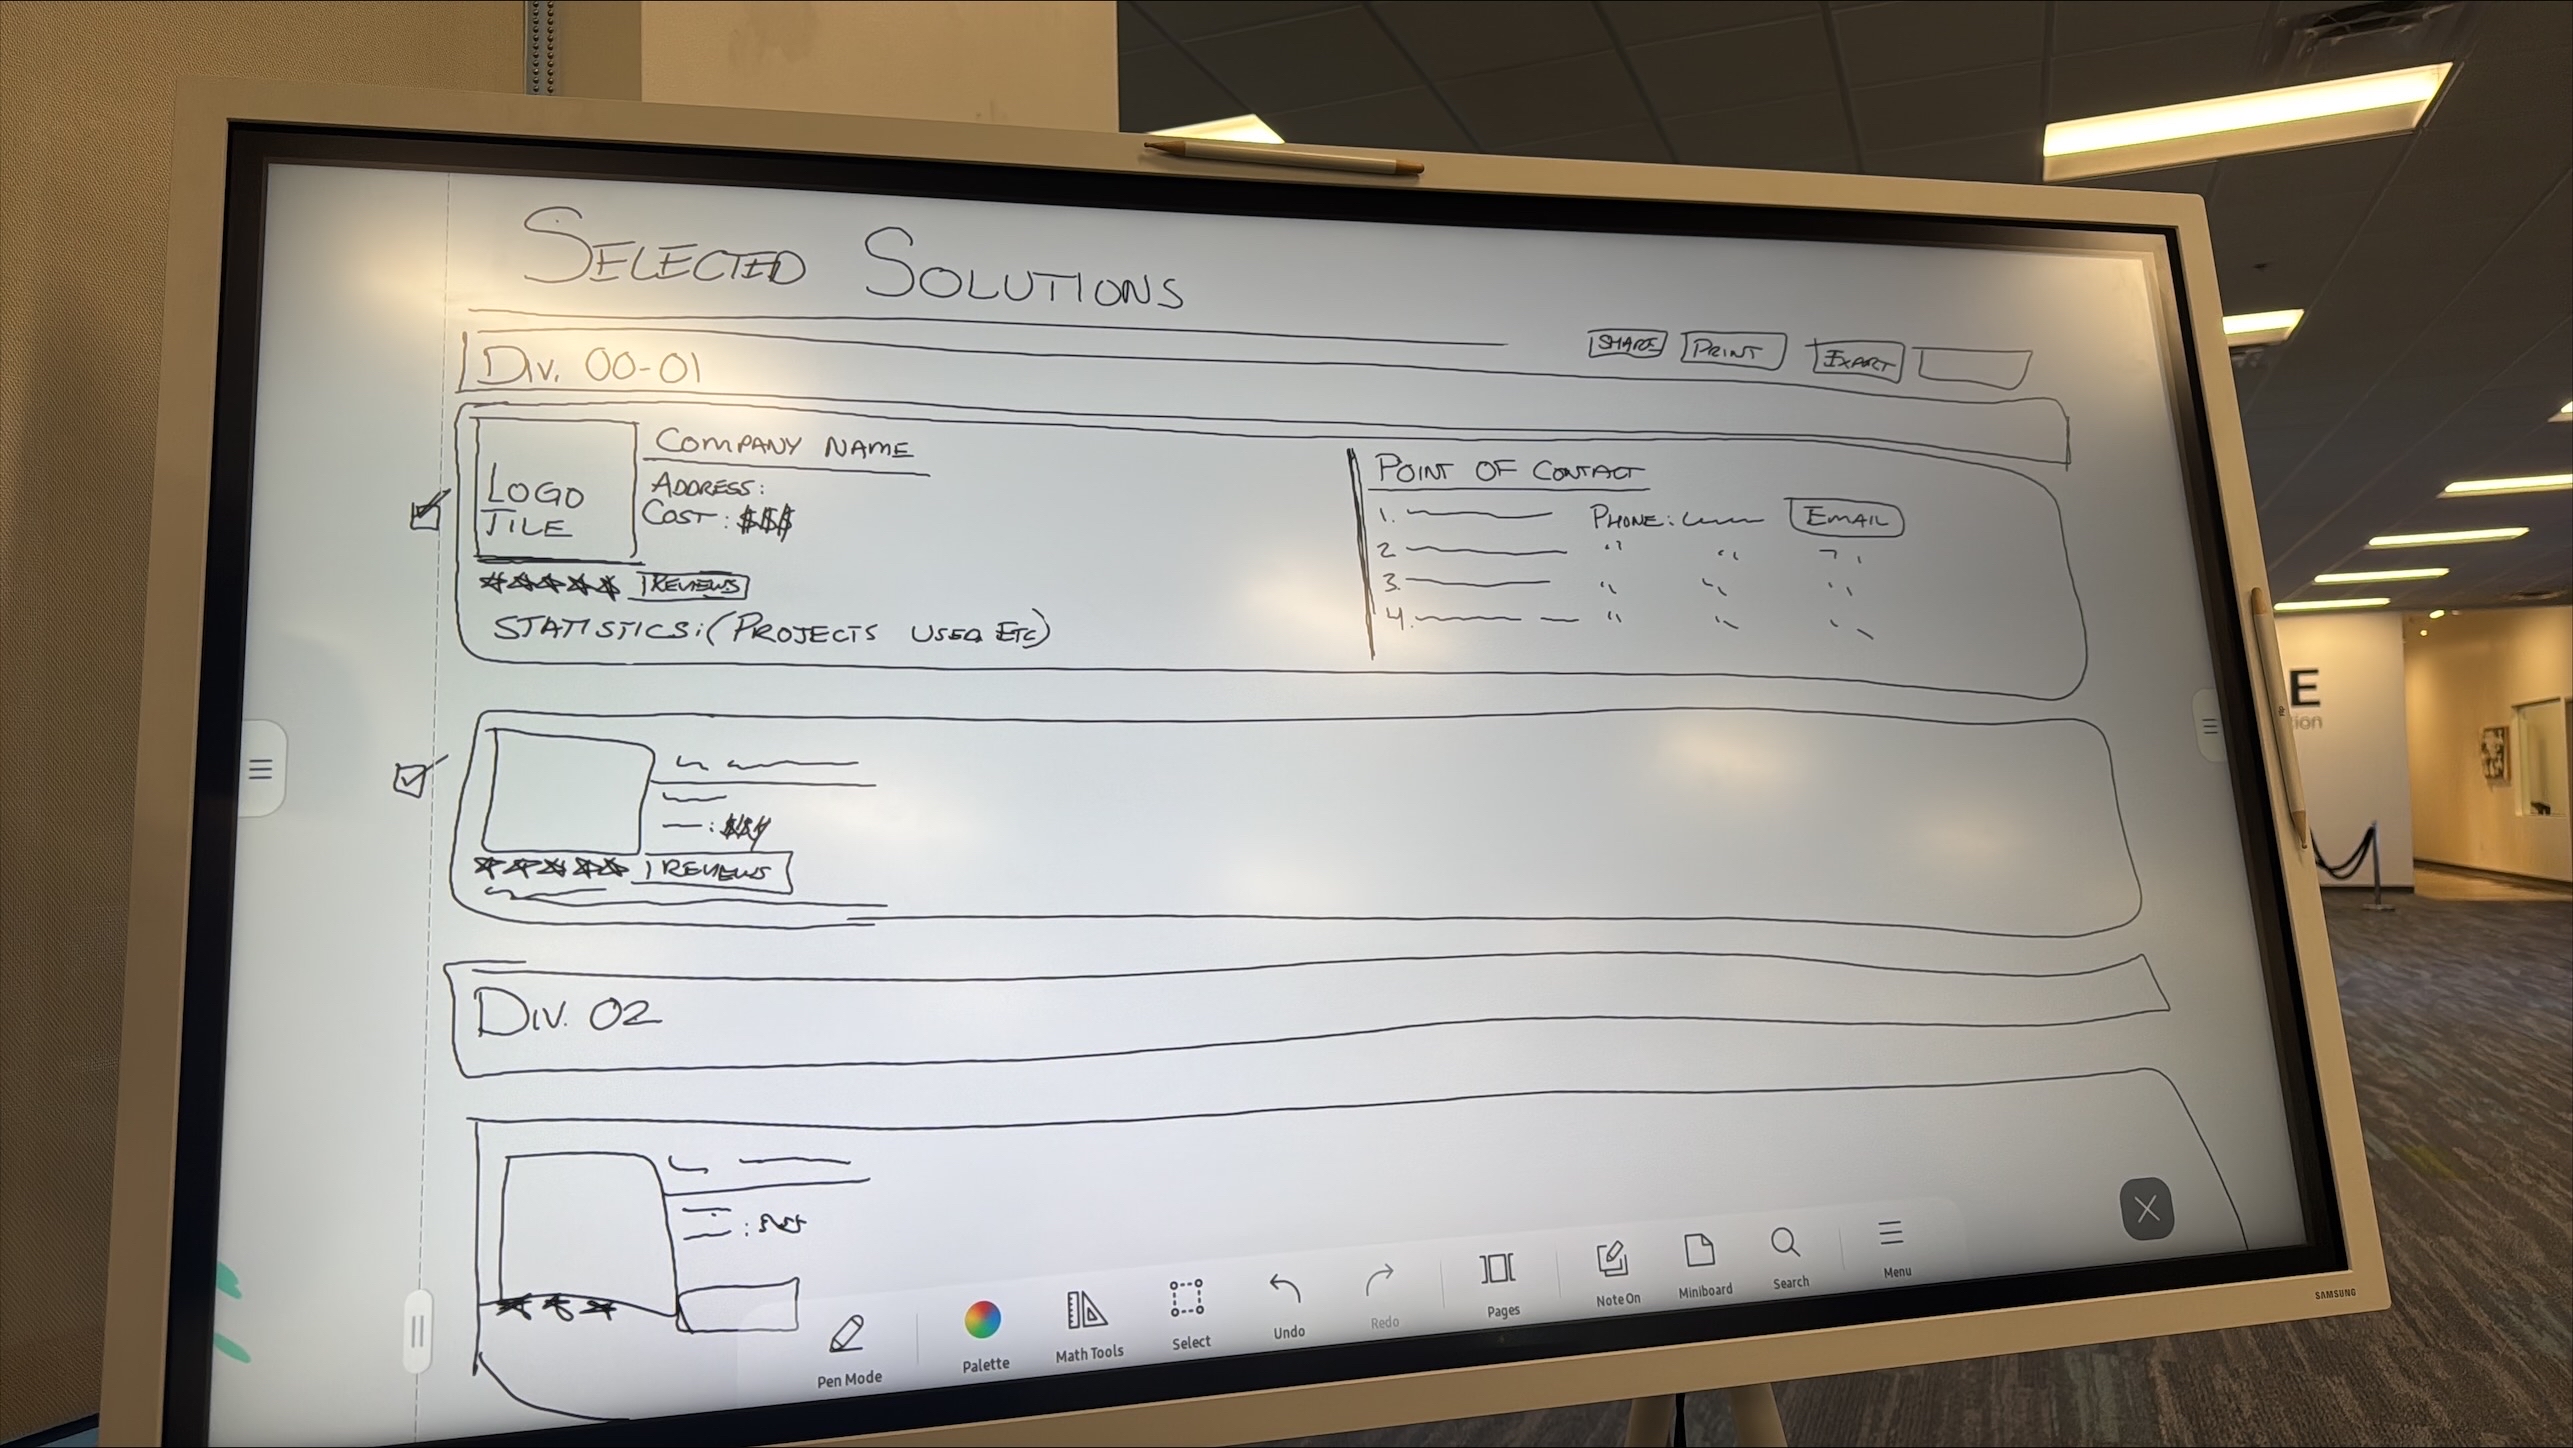 SELECTED SOLUTIONS
SHARE PRINT EXPORT
DIV. 00-01
COMPANY NAME
LOGO
TILE
ADDRESS:
COST: $$$
REVIEWS
STATISTICS: (PROJECTS USED ETC)
POINT OF CONTACT
1. PHONE: EMAIL
2 " " "
3. " " "
4. " " "
: $$$
REVIEWS
DIV. 02
Pen Mode
Palette
Math Tools
Select
Undo
Redo
Pages
Note On
Miniboard
Search
Menu
SAMSUNG
E
tion